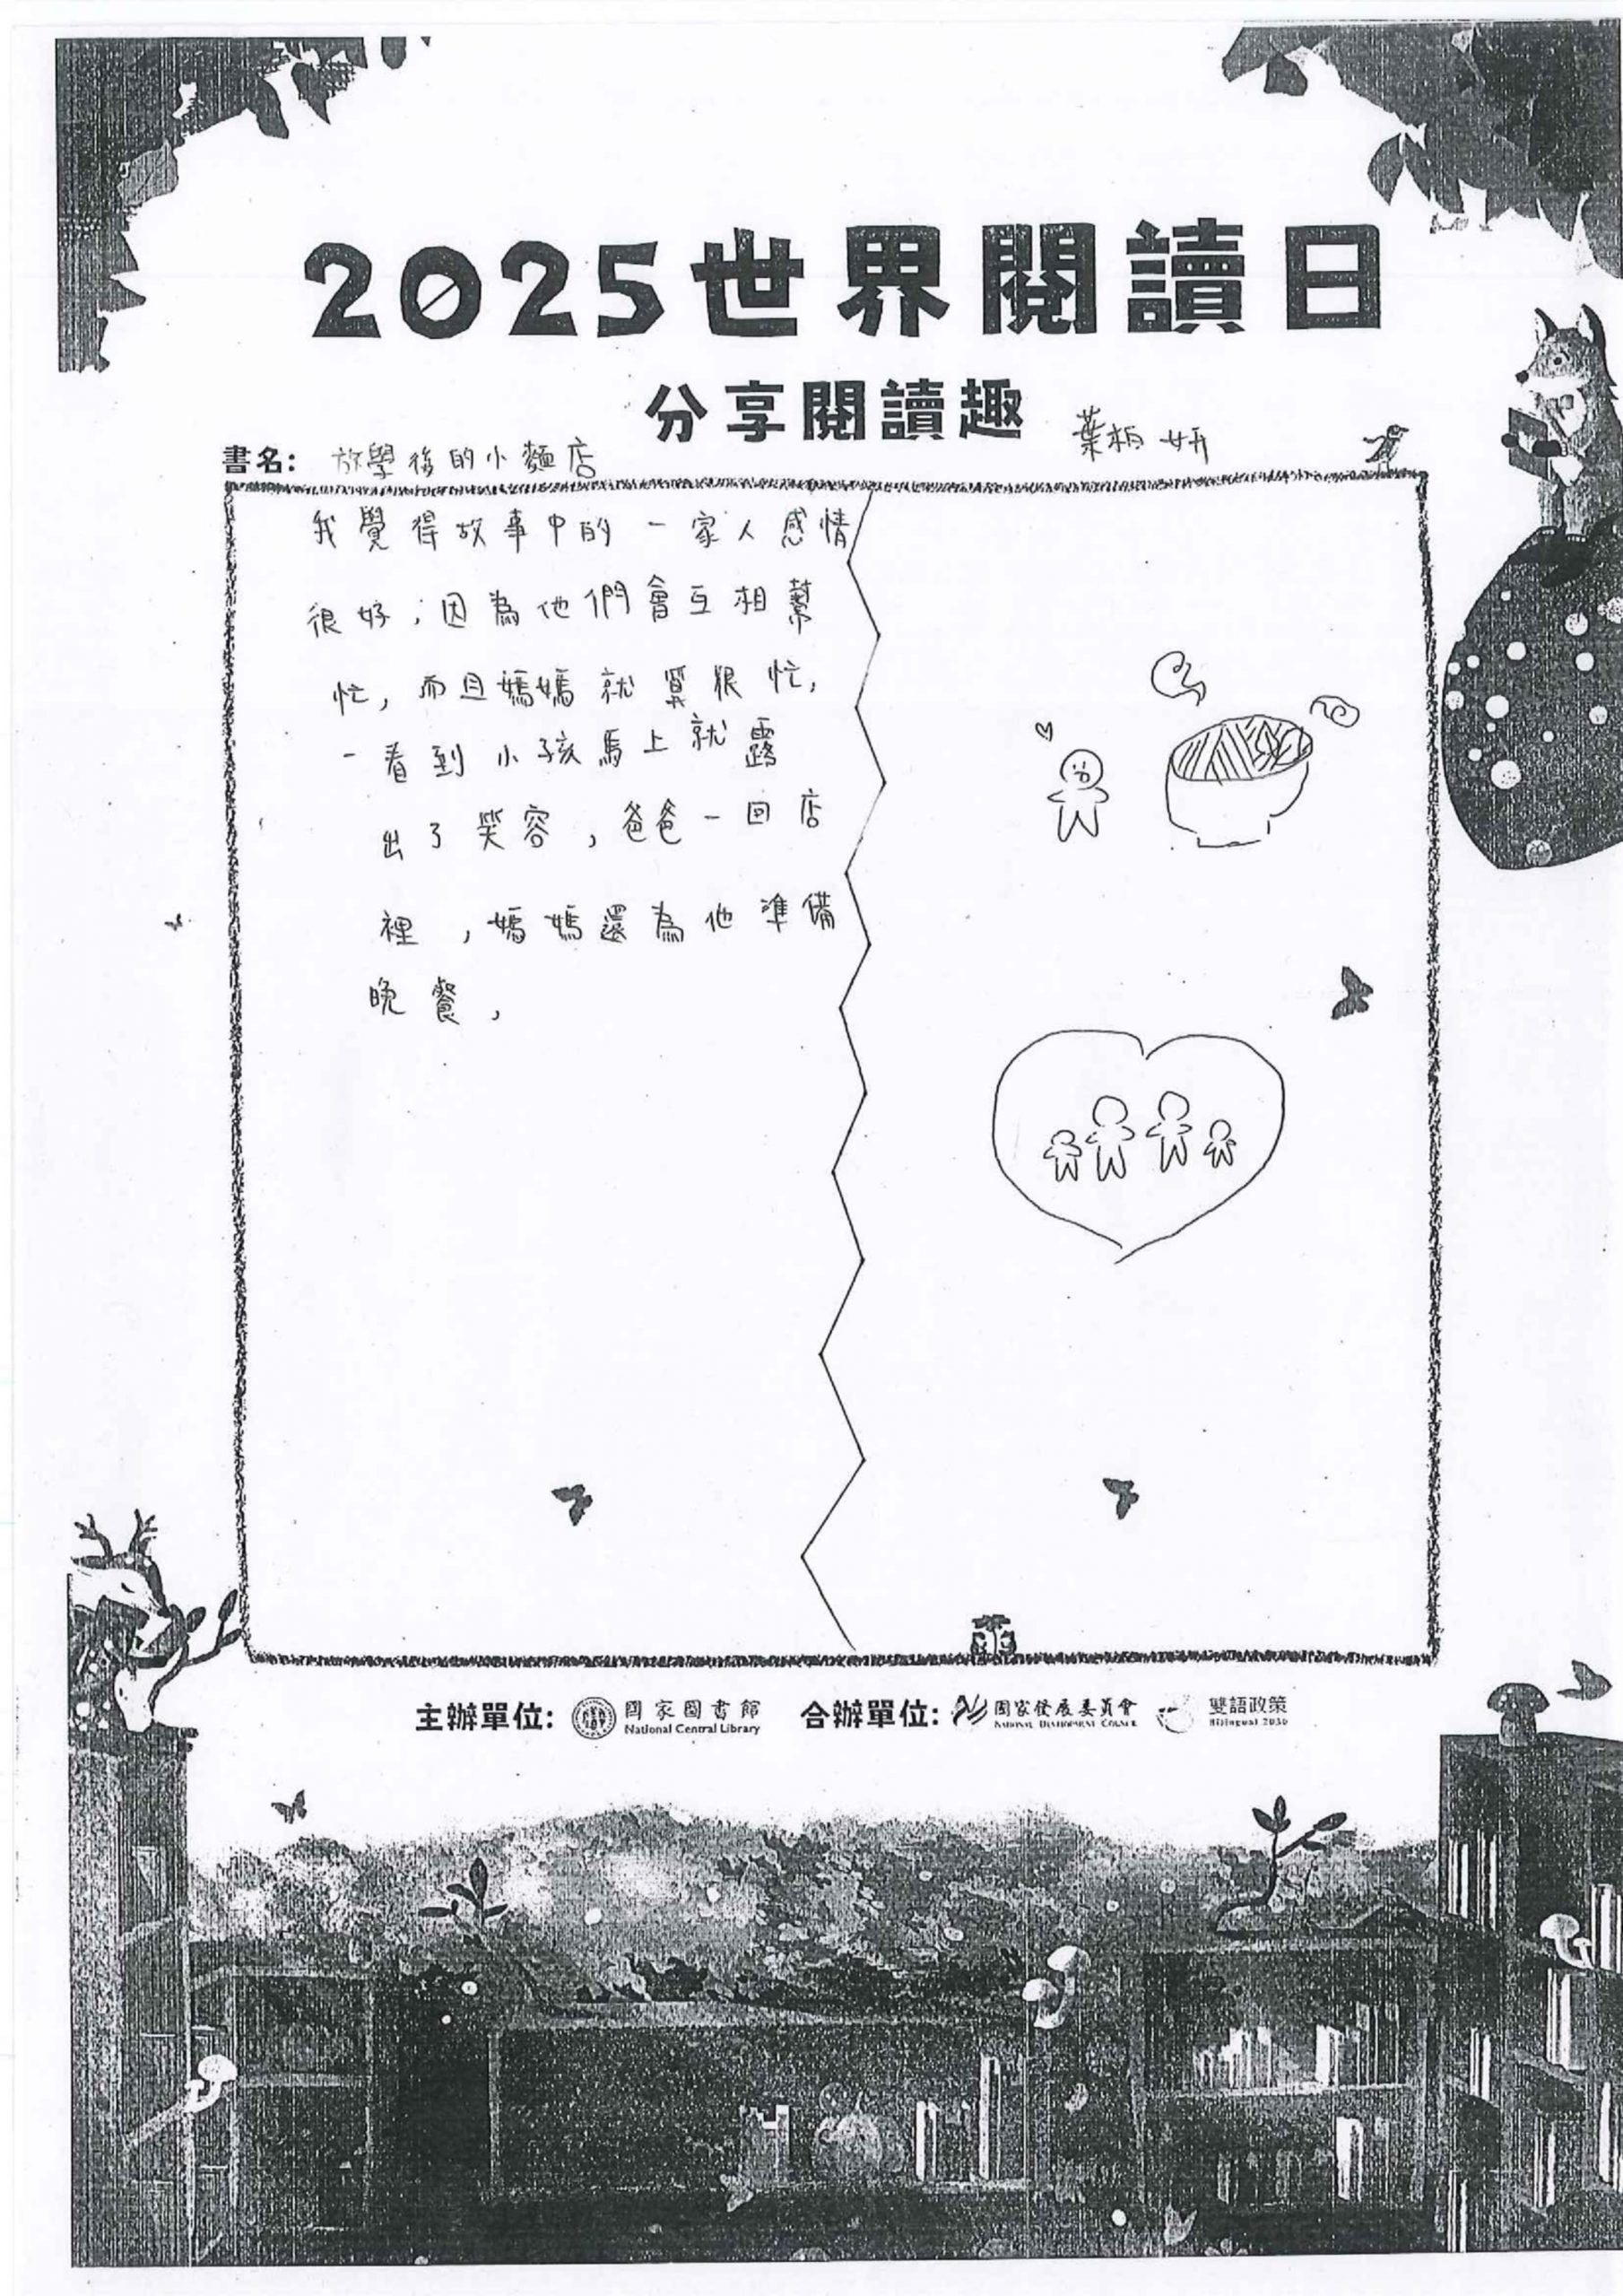 2025世界閱讀日
分享閱讀趣
葉栢妍
書名: 放學後的小麵店
我覺得故事中的一家人感情
很好,因為他們會互相幫
忙,而且媽媽就算很忙,
一看到小孩馬上就露
出了笑容,爸爸一回店
裡,媽媽還為他準備
晚餐,
主辦單位: 國家圖書館 合辦單位: 國家發展委員會 雙語政策
National Central Library NATIONAL DEVELOPMENT COUNCIL Bilingual 2030